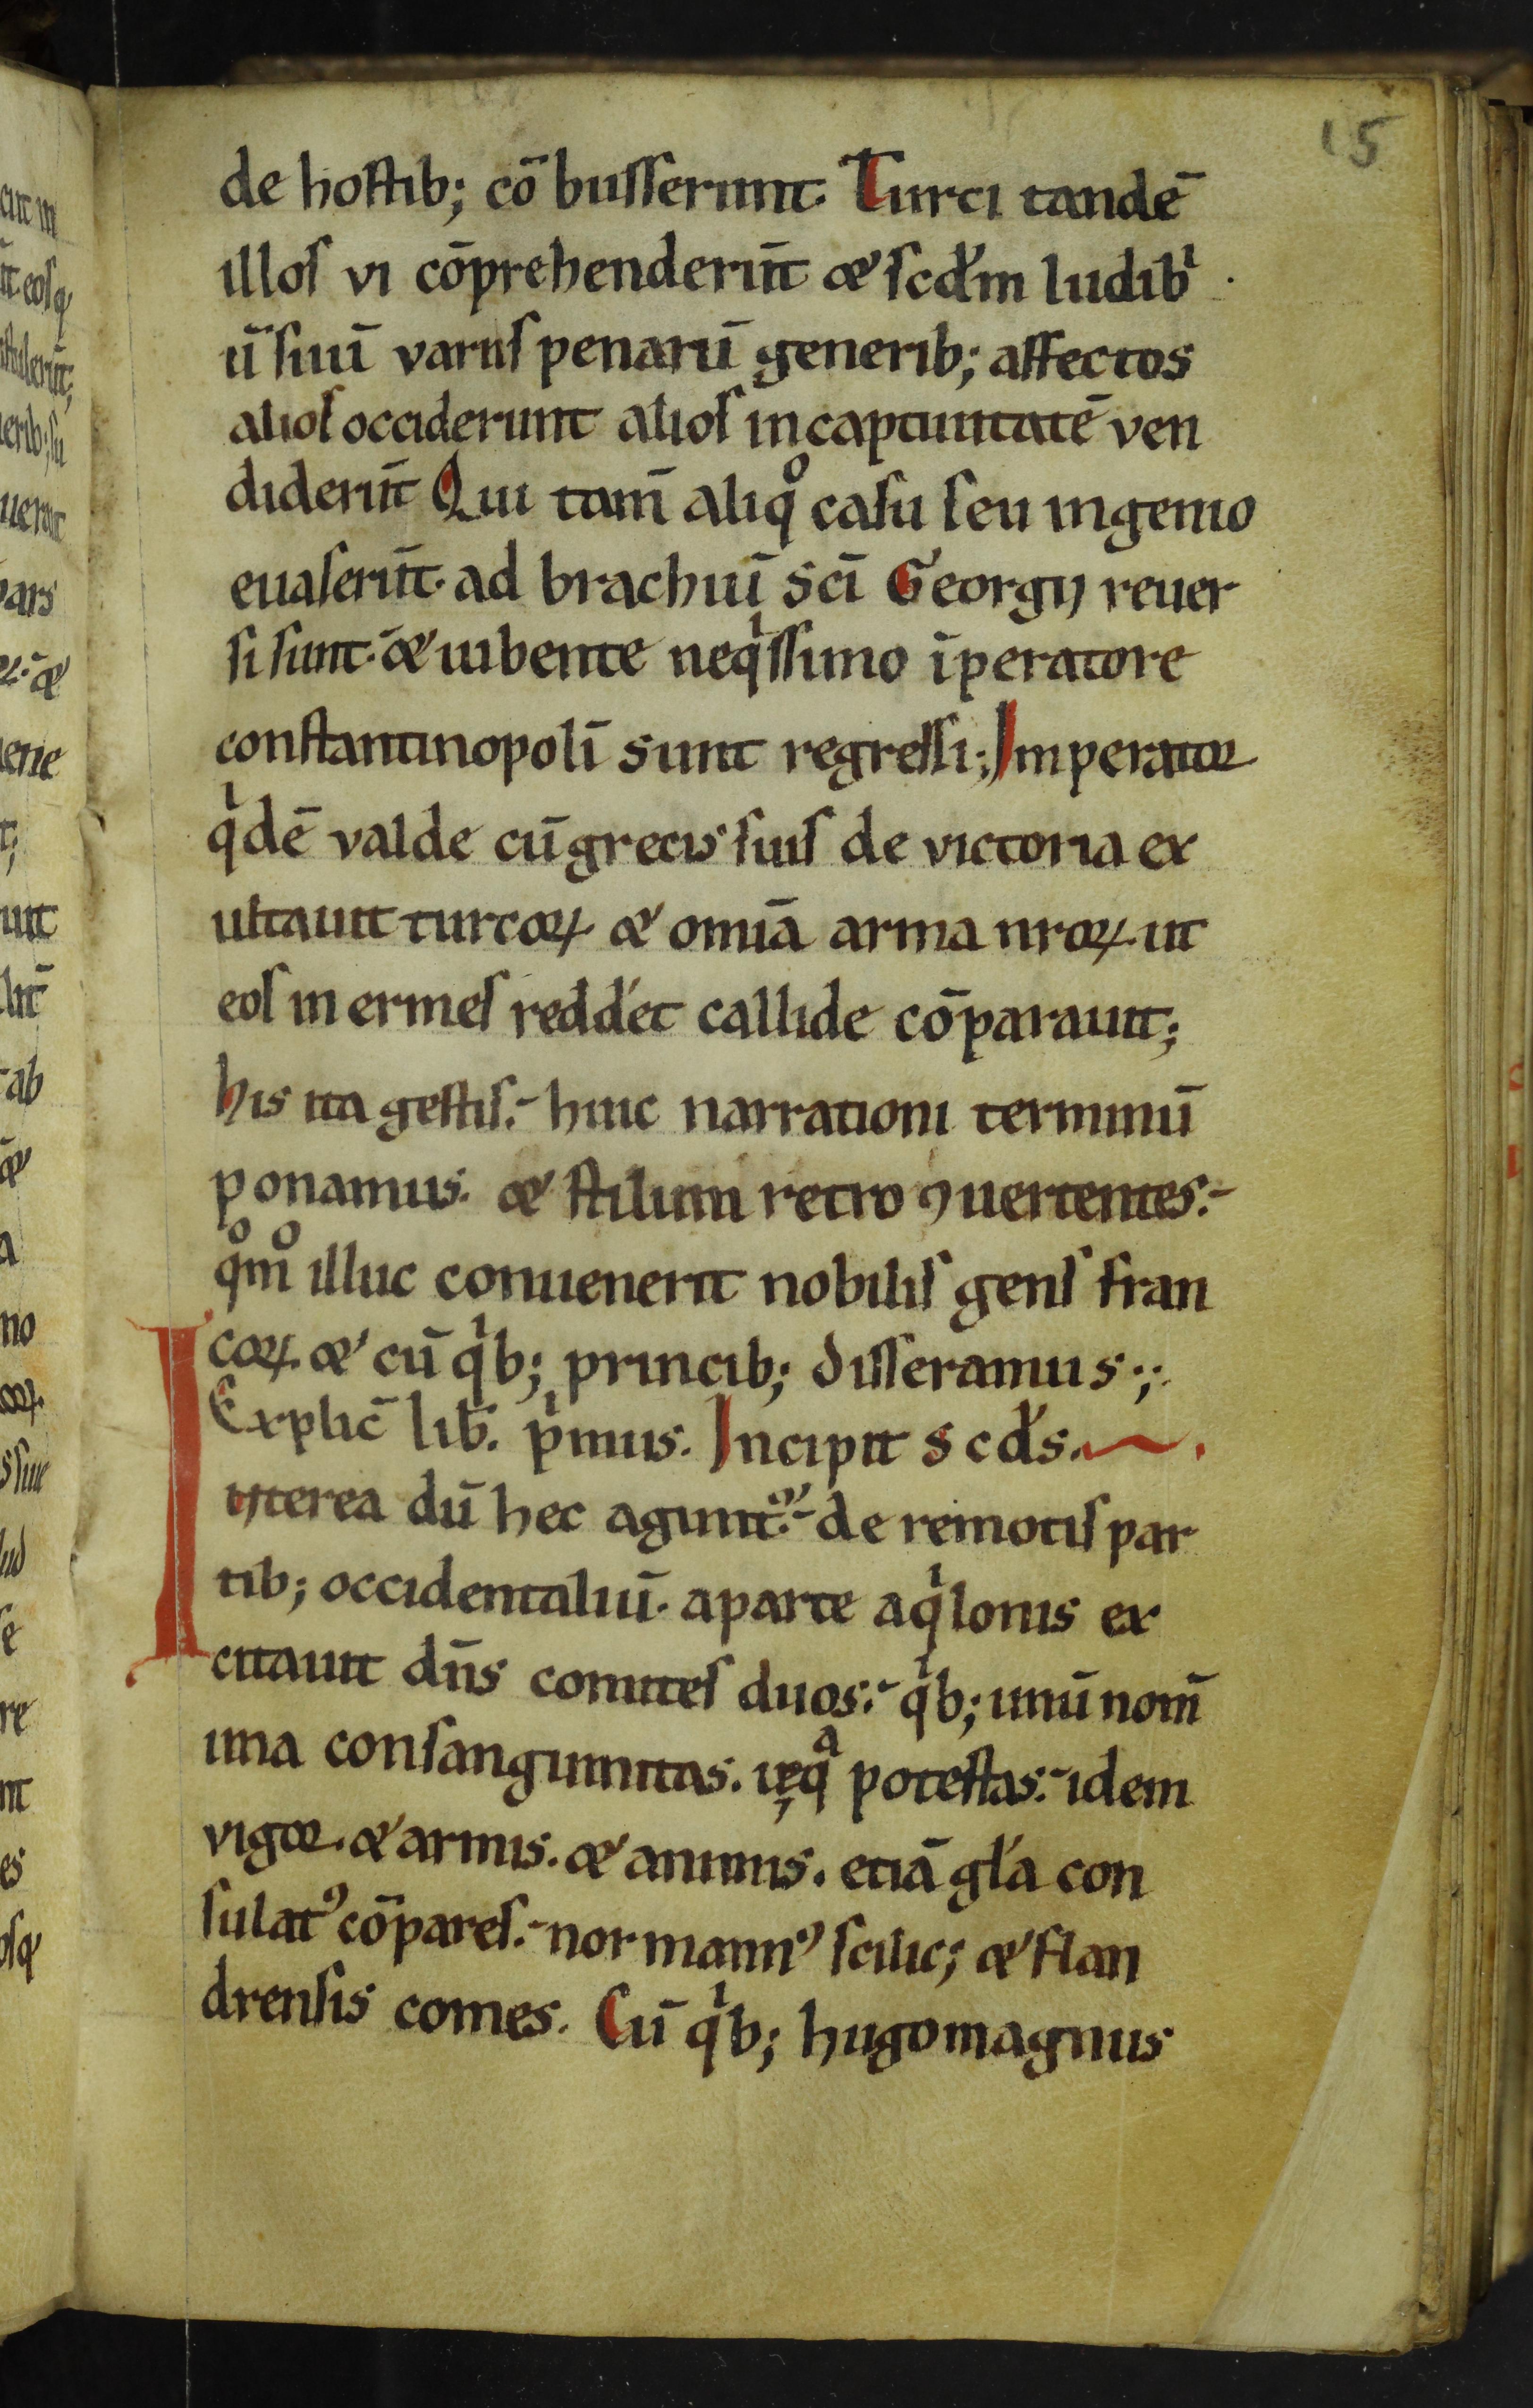 15
de hostib; cō busserunt. Turci tandē
illos vi cōprehenderūt & scdm̄ ludibⁱ
ū suū variis penarū generib; affectos
alios occiderunt alios in captiuitatē ven
diderūt Qui tam̄ aliqͦ casu seu ingenio
euaserūt. ad brachiū sc̄i Georgij reuer
si sunt. & iubente neqⁱssimo īperatore
constantinopolī sunt regressi; Imperator
qⁱdē valde cū grecis suis de victoria ex
ultauit turcoꝝ & omīa arma nroꝝ. ut
eos in ermes redd'et callide cōparauit;
his ita gestis. hinc narrationi terminū
ponamus. & stilum retro ꝯuertentes.
qͦmͦ illuc conuenerit nobilis gens fran
coꝝ. & cū qⁱb; princib; disseramus;
Explic̄ lib̄. pⁱmus. Incipit scd's.
Interea dū hec agunt᷑. de remotis par
tib; occidentaliū. a parte aqⁱlonis ex
citauit dn̄s comites duos. qⁱb; unū nom̄
una consanguinitas. ęqͣ potestas. idem
vigor. & armis. & animis. etiā gl'a con
sulatꝰ cōpares. normannꝰ scilic; & flan
drensis comes. Cū qⁱb; hugo magnus